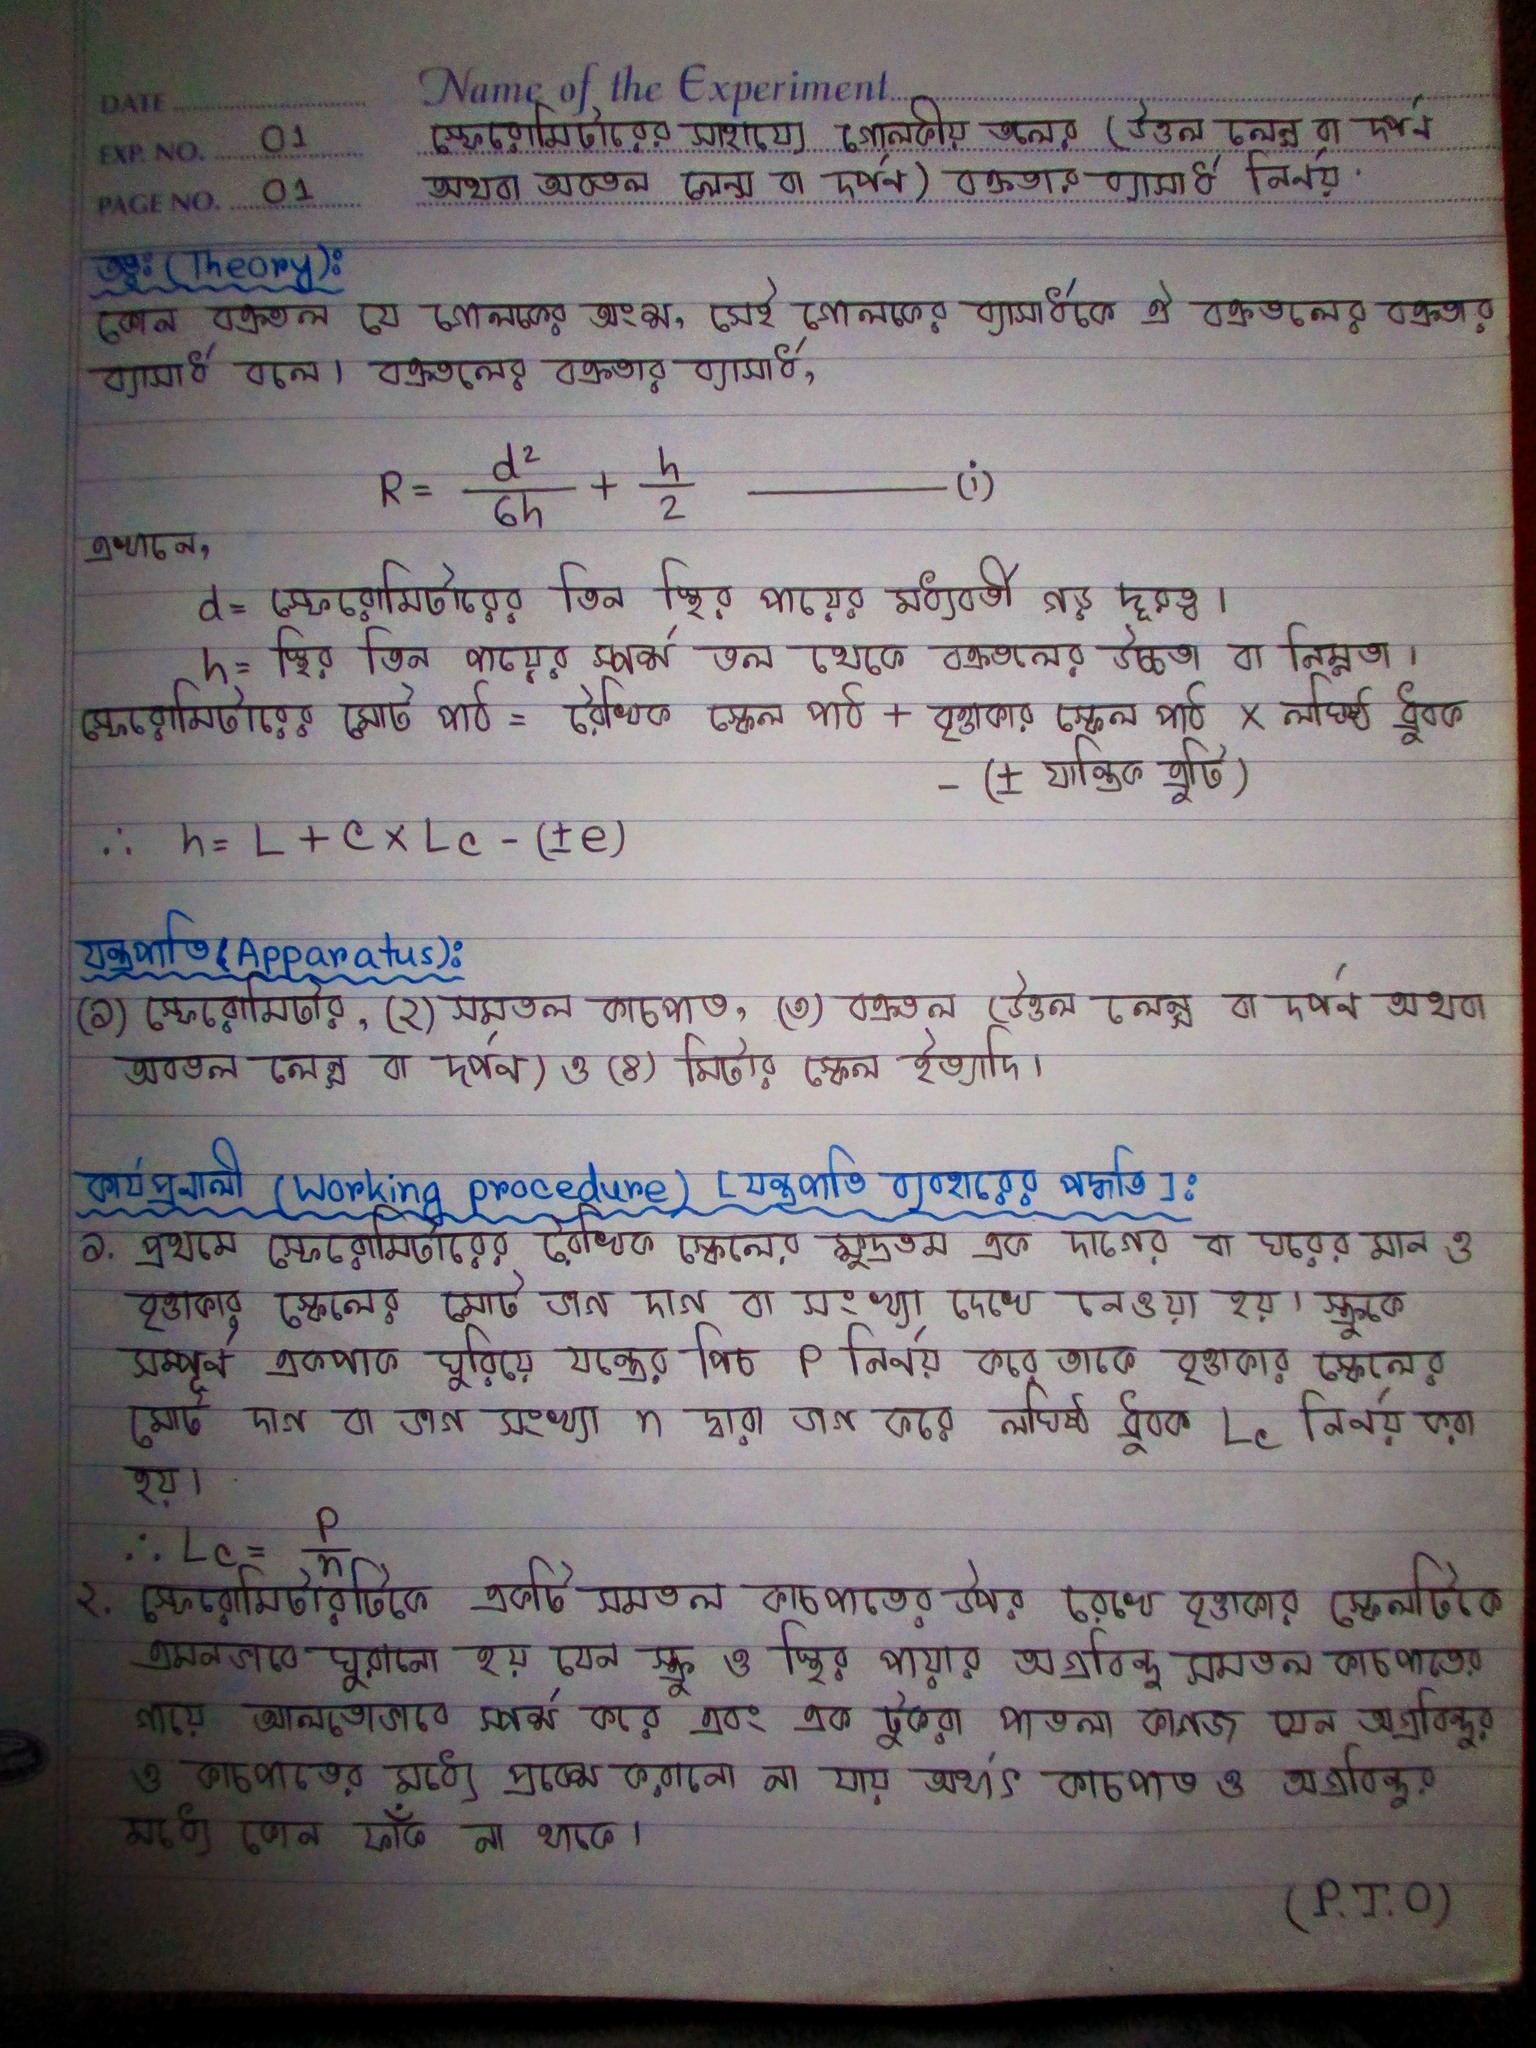 Name of the Experiment
DATE
EXP. NO. 01
PAGE NO. 01
স্ফেরোমিটারের সাহায্যে গোলকীয় তলের (উত্তল লেন্স বা দর্পন
অথবা অবতল লেন্স বা দর্পন) বক্রতার ব্যাসার্ধ নির্নয়.
তত্ত্ব: (Theory):
কোন বক্রতল যে গোলকের অংশ, সেই গোলকের ব্যাসার্ধকে ঐ বক্রতলের বক্রতার
ব্যাসার্ধ বলে। বক্রতলের বক্রতার ব্যাসার্ধ,
R = d²/6h + h/2 ——— (i)
এখানে,
d = স্ফেরোমিটারের তিন স্থির পায়ের মধ্যবর্তী গড় দূরত্ব।
h = স্থির তিন পায়ের স্পর্শ তল থেকে বক্রতলের উচ্চতা বা নিম্নতা।
স্ফেরোমিটারের মোট পাঠ = রৈখিক স্কেল পাঠ + বৃত্তাকার স্কেল পাঠ × লঘিষ্ঠ ধ্রুবক
- (± যান্ত্রিক ত্রুটি)
∴ h = L + C × Lc - (±e)
যন্ত্রপাতি (Apparatus):
(১) স্ফেরোমিটার, (২) সমতল কাচপাত, (৩) বক্রতল (উত্তল লেন্স বা দর্পন অথবা
অবতল লেন্স বা দর্পন) ও (৪) মিটার স্কেল ইত্যাদি।
কার্যপ্রনালী (Working procedure) [যন্ত্রপাতি ব্যবহারের পদ্ধতি]:
১. প্রথমে স্ফেরোমিটারের রৈখিক স্কেলের ক্ষুদ্রতম এক দাগের বা ঘরের মান ও
বৃত্তাকার স্কেলের মোট ভাগ দাগ বা সংখ্যা দেখে নেওয়া হয়। স্ক্রুকে
সম্পূর্ন একপাক ঘুরিয়ে যন্ত্রের পিচ P নির্নয় করে তাকে বৃত্তাকার স্কেলের
মোট দাগ বা ভাগ সংখ্যা n দ্বারা ভাগ করে লঘিষ্ঠ ধ্রুবক Lc নির্নয় করা
হয়।
∴ Lc = P/n
২. স্ফেরোমিটারটিকে একটি সমতল কাচপাতের উপর রেখে বৃত্তাকার স্কেলটিকে
এমনভাবে ঘুরানো হয় যেন স্ক্রু ও স্থির পায়ার অগ্রবিন্দু সমতল কাচপাতের
গায়ে আলতোভাবে স্পর্শ করে এবং এক টুকরা পাতলা কাগজ যেন অগ্রবিন্দুর
ও কাচপাতের মধ্যে প্রবেশ করানো না যায় অর্থাৎ কাচপাত ও অগ্রবিন্দুর
মধ্যে কোন ফাঁক না থাকে।
(P.T.O)